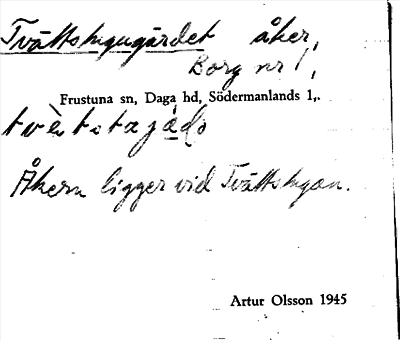 Tvättstugugärdet åker,
Borg nr 1,
Frustuna sn, Daga hd, Södermanlands l,.
Åkern ligger vid Tvättstugan.
Artur Olsson 1945